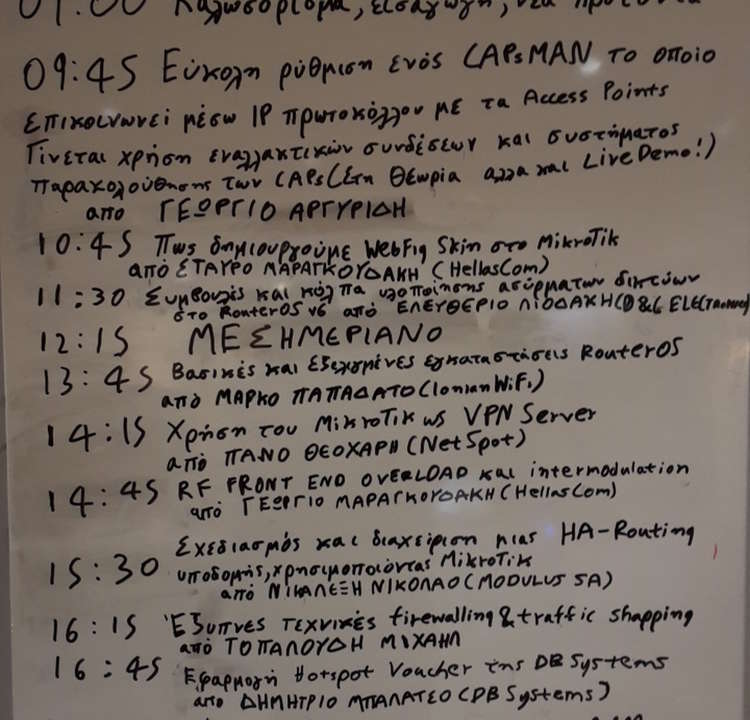 09:00 Καλωσόρισμα, εισαγωγή, νέα προϊόντα
09:45 Εύκολη ρύθμιση ενός CAPsMAN το οποίο
επικοινωνεί μέσω IP πρωτοκόλλου με τα Access Points
Γίνεται χρήση εναλλακτικών συνδέσεων και συστήματος
παρακολούθησης των CAPs (Στη Θεωρία αλλα και Live Demo!)
απο ΓΕΩΡΓΙΟ ΑΡΓΥΡΙΔΗ
10:45 Πως δημιουργούμε WebFig Skin στο MikroTik
από ΣΤΑΥΡΟ ΜΑΡΑΓΚΟΥΔΑΚΗ (HellasCom)
11:30 Συμβουλές και κόλπα υλοποίησης ασύρματων δικτύων
στο RouterOS v6 από ΕΛΕΥΘΕΡΙΟ ΛΙΟΔΑΚΗ (D&G ELECTRONICS)
12:15 ΜΕΣΗΜΕΡΙΑΝΟ
13:45 Βασικές και Εξεζημένες εγκαταστάσεις RouterOS
από ΜΑΡΚΟ ΠΑΠΑΔΑΤΟ (Ionian WiFi)
14:15 Χρήση του MikroTik ως VPN Server
από ΠΑΝΟ ΘΕΟΧΑΡΗ (NetSpot)
14:45 RF FRONT END OVERLOAD και intermodulation
από ΓΕΩΡΓΙΟ ΜΑΡΑΓΚΟΥΔΑΚΗ (HellasCom)
15:30 Σχεδιασμός και διαχείριση μιας HA-Routing
υποδομής, χρησιμοποιόντας MikroTik
από ΝΙΚΑΛΕΞΗ ΝΙΚΟΛΑΟ (MODULUS SA)
16:15 Έξυπνες τεχνικές firewalling & traffic shapping
από ΤΟΠΑΛΟΥΔΗ ΜΙΧΑΗΛ
16:45 Εφαρμογή Hotspot Voucher της DB Systems
απο ΔΗΜΗΤΡΙΟ ΜΠΑΛΑΤΣΟ (DB Systems)